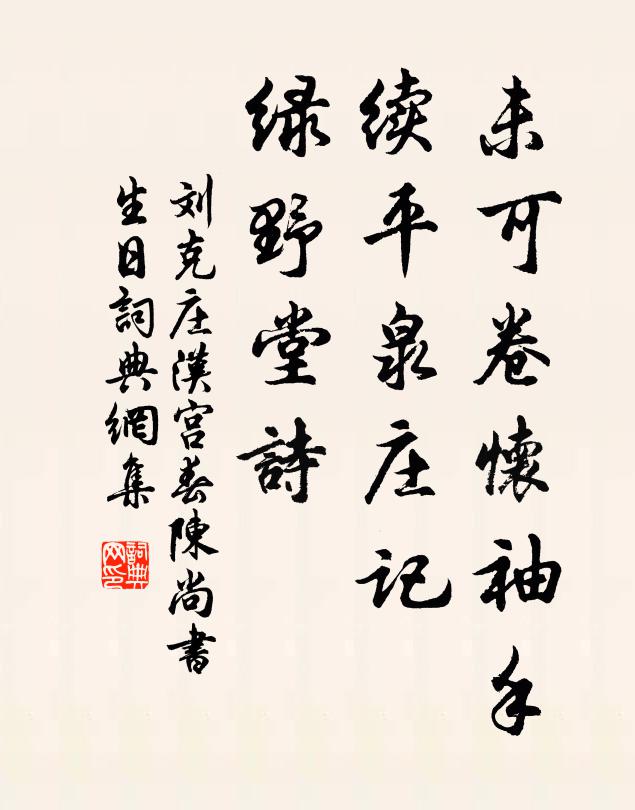 未可卷懷袖手
续平泉庄记
绿野堂詩
刘克庄漢宫春陳尚書
生日詞典網集
詞典网印